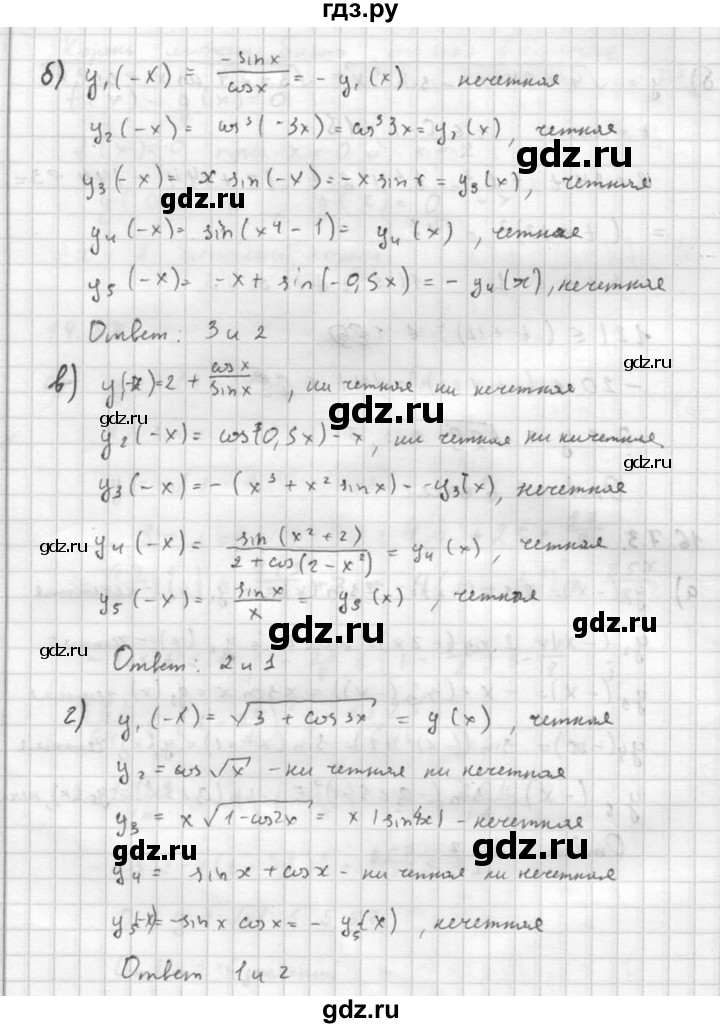 гдз.ру
б) y₁(-x) = -sinx/cosx = - y₁(x) нечетная
y₂(-x) = cos³(-3x) = cos³3x = y₂(x), четная
y₃(-x) = x sin(-x) = -x sinx = y₃(x), четная
gdz.ru
gdz.ru
y₄(-x) = sin(x⁴ - 1) = y₄(x), четная
y₅(-x) = -x + sin(-0,5x) = - y₄(x), нечетная
Ответ: 3 и 2
gdz.ru
в) y₁(-x) = 2 + cosx/sinx, ни четная ни нечетная
gdz.ru
y₂(-x) = cos³(0,5x) - x, ни четная ни кичетная
gdz.ru
y₃(-x) = - (x³ + x² sinx) - -y₃(x), нечетная
gdz.ru
y₄(-x) = sin(x² + 2)/2 + cos(2 - x²) = y₄(x), четная
gdz.ru
y₅(-x) = sinx/x = y₅(x), четная
gdz.ru
gdz.ru
Ответ: 2 и 1
г) y₁(-x) = √3 + cos3x = y(x), четная
y₂ = cos √x - ни четная ни нечетная
y₃ = x √1 - cos2x = x |sin4x| - нечетная
gdz.ru
gdz.ru
y₄ = sinx + cosx - ни четная ни нечетная
y₅(-x) = -sinx cosx = - y₅(x), нечетная
Ответ 1 и 2
gdz.ru
gdz.ru